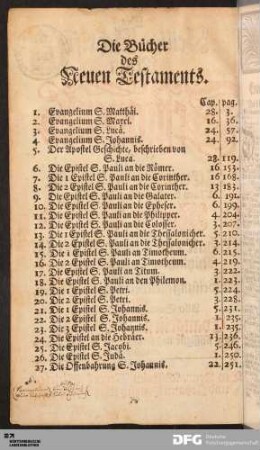 Die Bücher
des
Neuen Testaments.
Cap. pag.
1. Evangelium S. Matthäi. 28. 3.
2. Evangelium S. Marci. 16. 36.
3. Evangelium S. Lucä. 24. 57.
4. Evangelium S. Johannis. 24. 92.
5. Der Apostel Geschichte, beschrieben von
S. Luca. 28. 119.
6. Die Epistel S. Pauli an die Römer. 16 153.
7. Die 1 Epistel S. Pauli an die Corinther. 16 168.
8. Die 2 Epistel S. Pauli an die Corinther. 13 183.
9. Die Epistel S. Pauli an die Galater. 6. 191.
10. Die Epistel S. Pauli an die Epheser. 6. 199.
11. Die Epistel S. Pauli an die Philipper. 4. 204.
12. Die Epistel S. Pauli an die Colosser. 3. 207.
13. Die 1 Epistel S. Pauli an die Thessalonicher. 5. 210.
14. Die 2 Epistel S. Pauli an die Thessalonicher. 3. 214.
15. Die 1 Epistel S. Pauli an Timotheum. 6. 215.
16. Die 2 Epistel S. Pauli an Timotheum. 4. 219.
17. Die Epistel S. Pauli an Titum. 3. 222.
18. Die Epistel S. Pauli an den Philemon. 1. 223.
19. Die 1 Epistel S. Petri. 5. 224.
20. Die 2 Epistel S. Petri. 3. 228.
21. Die 1 Epistel S. Johannis. 5. 231.
22. Die 2 Epistel S. Johannis. 1. 235.
23. Die 3 Epistel S. Johannis. 1. 235.
24. Die Epistel an die Hebräer. 13. 236.
25. Die Epistel S. Jacobi. 5. 246.
26. Die Epistel S. Judä. 1. 250.
27. Die Offenbahrung S. Johannis. 22. 251.
DFG Deutsche
Forschungsgemeinschaft